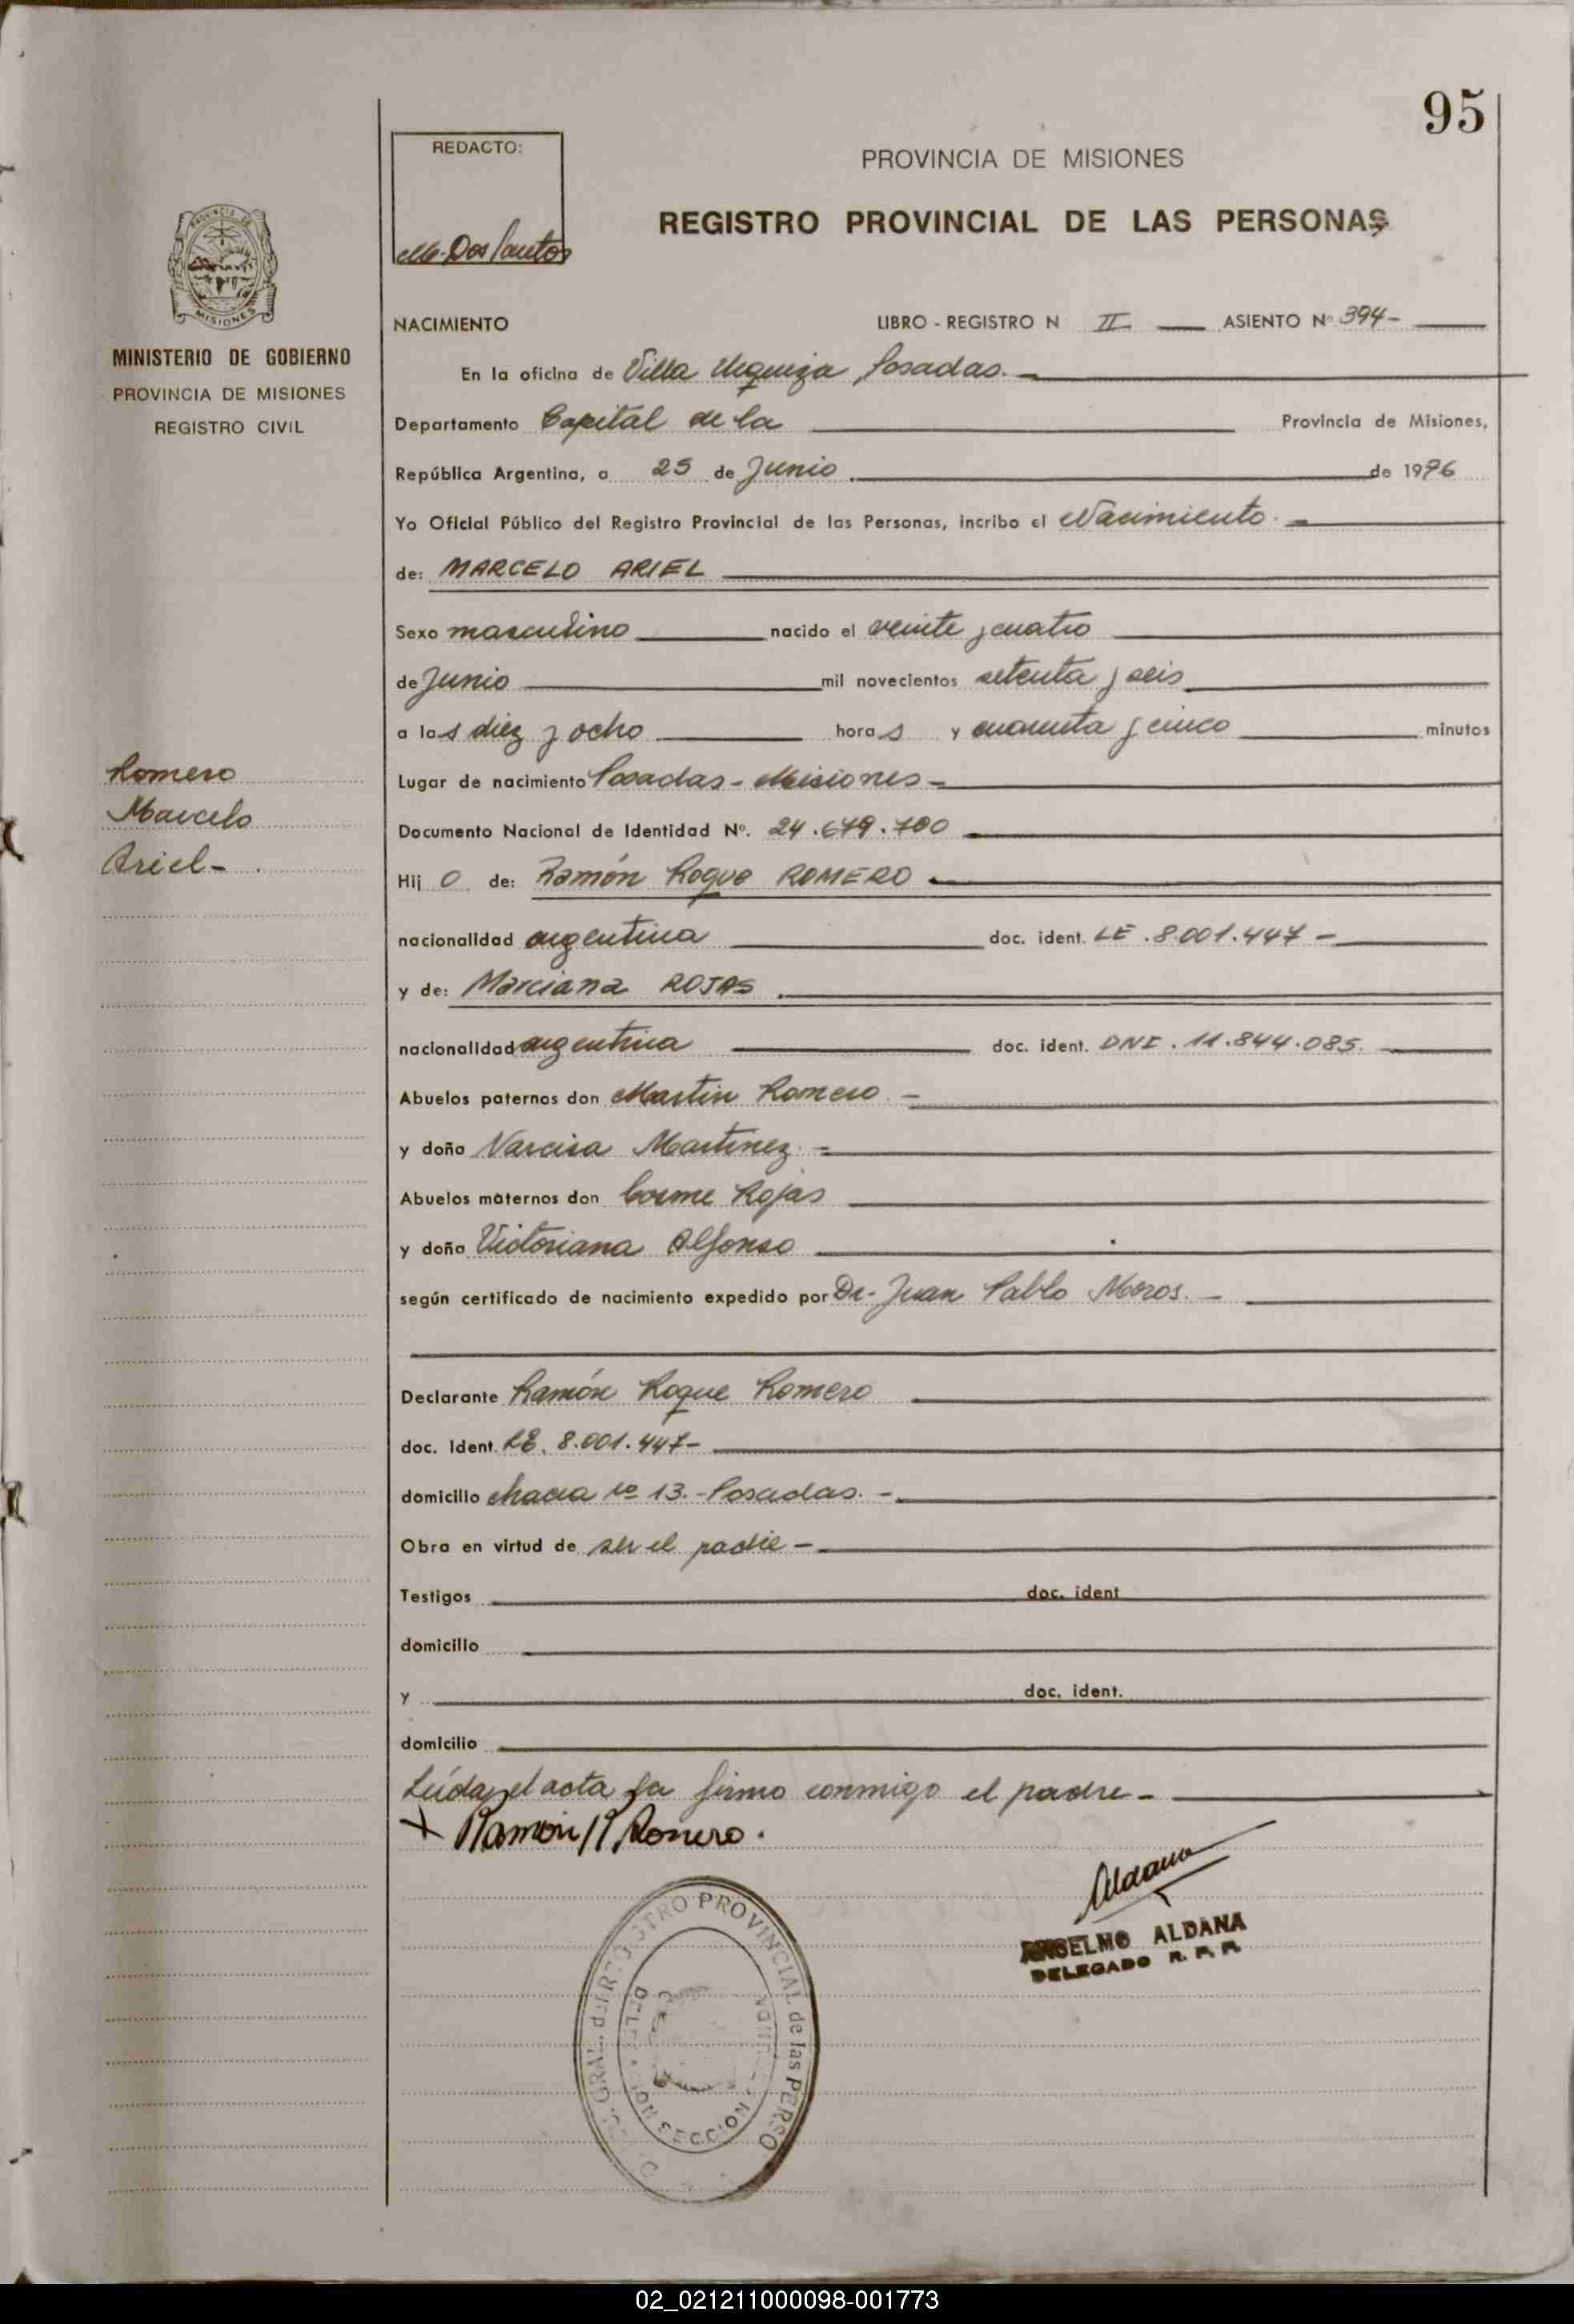 95
REDACTO:
M. Dos Santos
PROVINCIA DE MISIONES
REGISTRO PROVINCIAL DE LAS PERSONAS
MISIONES
MINISTERIO DE GOBIERNO
PROVINCIA DE MISIONES
REGISTRO CIVIL
NACIMIENTO LIBRO - REGISTRO N II ASIENTO Nº 394-
En la oficina de Villa Urquiza Posadas.-
Departamento Capital de la Provincia de Misiones,
República Argentina, a 25 de Junio de 1976
Yo Oficial Público del Registro Provincial de las Personas, incribo el Nacimiento.-
de: MARCELO ARIEL
Sexo masculino nacido el veinte y cuatro
de Junio mil novecientos setenta y seis
a las diez y ocho horas y cuarenta y cinco minutos
Romero
Marcelo
Ariel-
Lugar de nacimiento Posadas - Misiones -
Documento Nacional de Identidad Nº. 24.679.700
Hij o de: Ramón Roque ROMERO
nacionalidad argentina doc. ident. LE.8.001.447-
y de: Marciana ROJAS
nacionalidad argentina doc. ident. DNI. 11.844.085.
Abuelos paternos don Martin Romero.-
y doña Narcisa Martinez.-
Abuelos maternos don Cosme Rojas
y doña Victoriana Alfonso
según certificado de nacimiento expedido por Dr. Juan Pablo Moros.-
Declarante Ramón Roque Romero
doc. Ident. LE. 8.001.447-
domicilio chacra nº 13.-Posadas.-
Obra en virtud de ser el padre-
Testigos doc. ident
domicilio
y doc. ident.
domicilio
Leída el acta la firma conmigo el padre-
X Ramon R Romero.
Aldana
ANSELMO ALDANA
DELEGADO R. P. P.
PROVINCIAL de las PERSO
SECCION
02_021211000098-001773